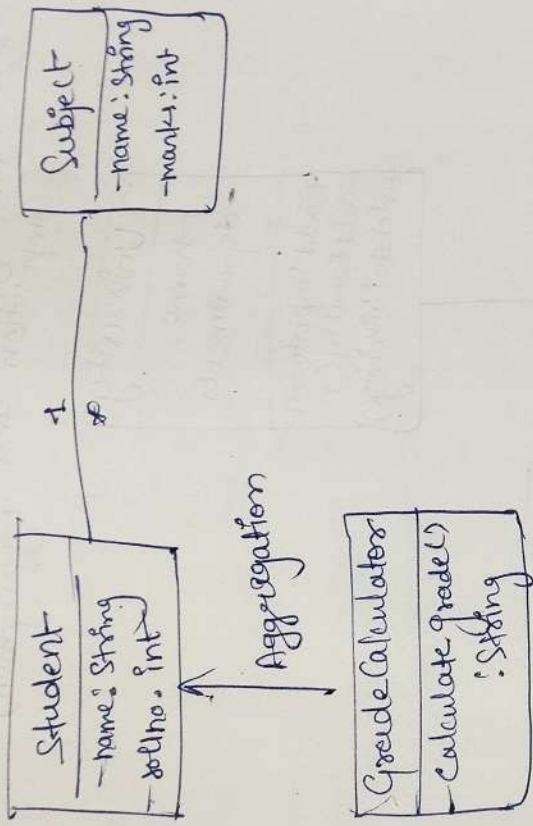 Student
-name: String
-rollno: int
1
*
Subject
-name: String
-marks: int
Aggregation
GradeCalculator
-Calculate grade()
: String